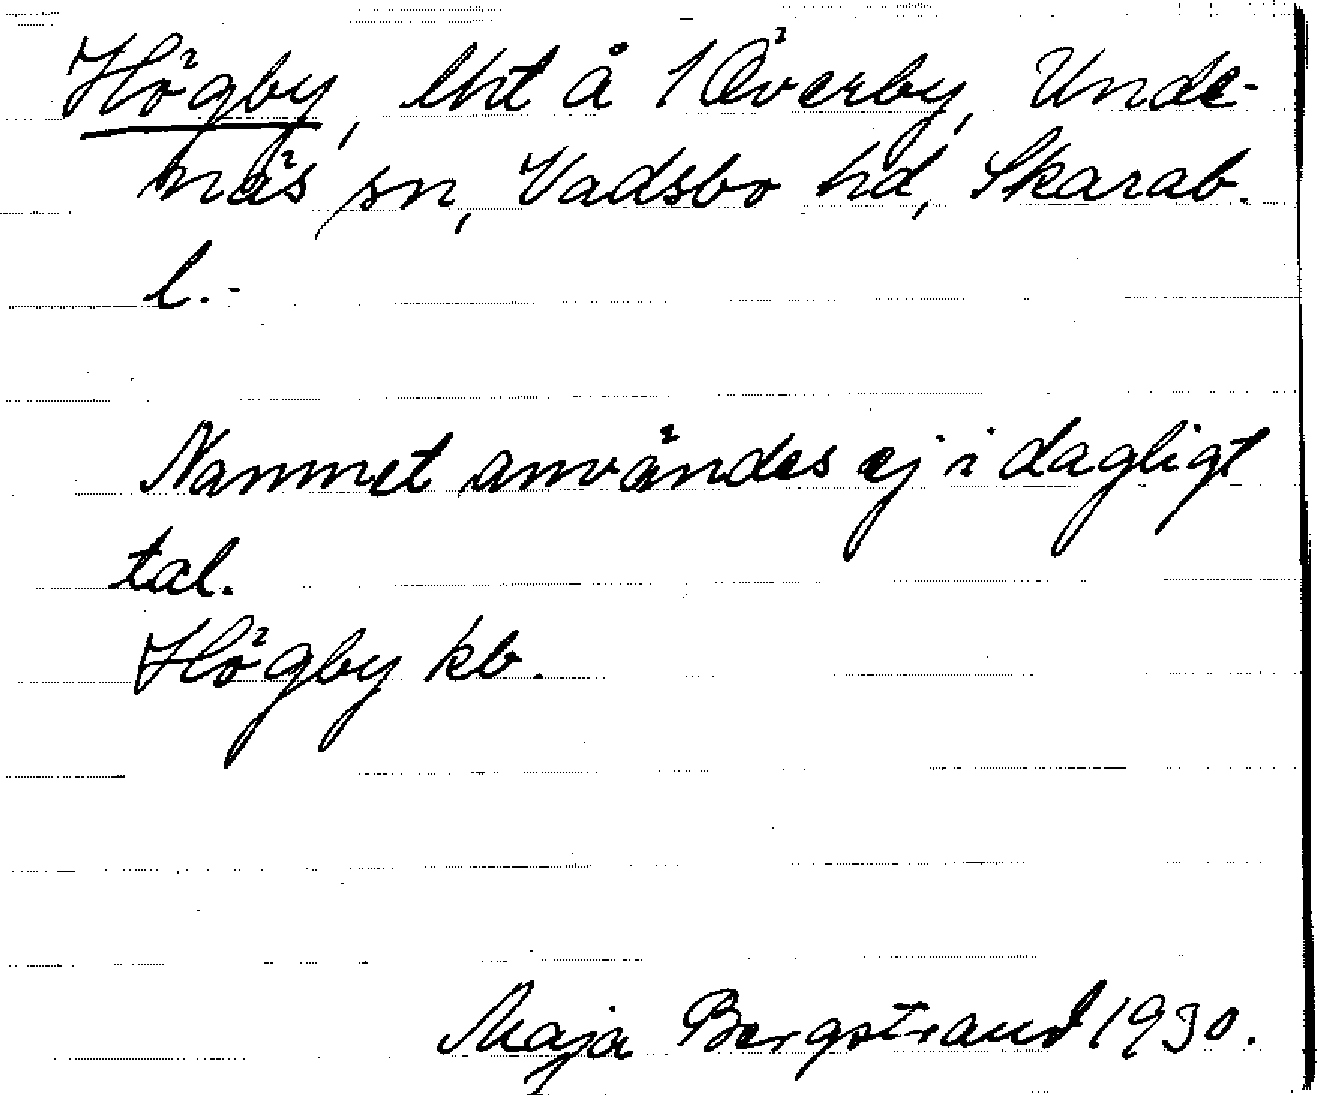 Högby, lht å 1 Överby, Unde-
näs sn, Vadsbo hd, Skarab.
l.-
Namnet användes ej i dagligt
tal.
Högby kb.
Maja Bergstrand 1930.